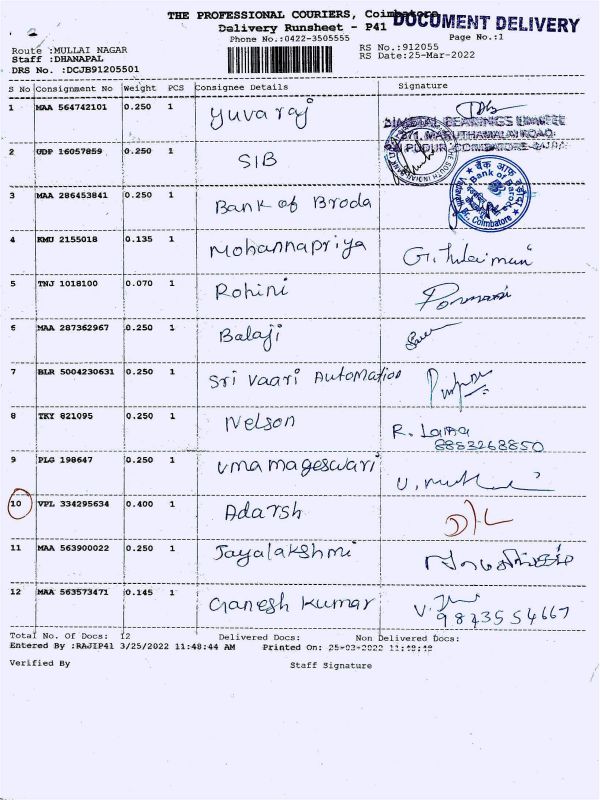 THE PROFESSIONAL COURIERS, Coimbatore
DOCUMENT DELIVERY
Delivery Runsheet - P41
Phone No.:0422-3505555
Page No.:1
Route :MULLAI NAGAR
RS No.:912055
Staff :DHANAPAL
RS Date:25-Mar-2022
DRS No. :DCJB91205501
S No Consignment No Weight PCS Consignee Details Signature
1 MAA 564742101 0.250 1 Yuvaraj
BEARINGS LIMITED
MARUTHAMALAI ROAD
PUDUR, COIMBATORE
2 UDP 16057859 0.250 1 SIB
THE SOUTH INDIAN
3 MAA 286453841 0.250 1 Bank of Broda
बैंक ऑफ़ बड़ौदा
Bank of Baroda
Br., Coimbatore
4 KMU 2155018 0.135 1 Mohannapriya
5 TNJ 1018100 0.070 1 Rohini
6 MAA 287362967 0.250 1 Balaji
7 BLR 5004230631 0.250 1 Sri Vaari Automation
8 TKY 821095 0.250 1 Nelson R. Lama
8853268850
9 PLG 198647 0.250 1 Umamageswari
10 VPL 334295634 0.400 1 Adarsh
11 MAA 563900022 0.250 1 Jayalakshmi
12 MAA 563573471 0.145 1 Ganesh Kumar V.
9873554667
Total No. Of Docs: 12 Delivered Docs: Non Delivered Docs:
Entered By :RAJIP41 3/25/2022 11:48:44 AM Printed On: 25-03-2022 11:48:48
Verified By Staff Signature